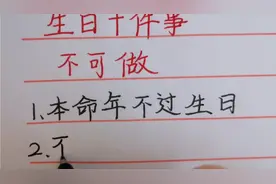 生日十件事
不可做
1.本命年不过生日
2.不